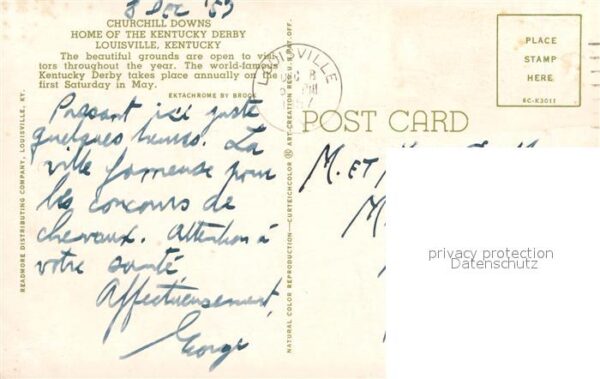 8 Dec '67
CHURCHILL DOWNS
HOME OF THE KENTUCKY DERBY
LOUISVILLE, KENTUCKY
The beautiful grounds are open to visi-
tors throughout the year. The world-famous
Kentucky Derby takes place annually on the
first Saturday in May.
EKTACHROME BY BROOK
Passant ici juste
quelques heures. La
ville fameuse pour
les concours de
chevaux. Attention à
votre santé
Affectueusement,
George
READMORE DISTRIBUTING COMPANY, LOUISVILLE, KY.
NATURAL COLOR REPRODUCTION—CURTEICHCOLOR ® ART-CREATION REG. U.S. PAT. OFF.
LOUISVILLE
POST CARD
PLACE
STAMP
HERE
6C-K2011
M. ET
M
privacy protection
Datenschutz